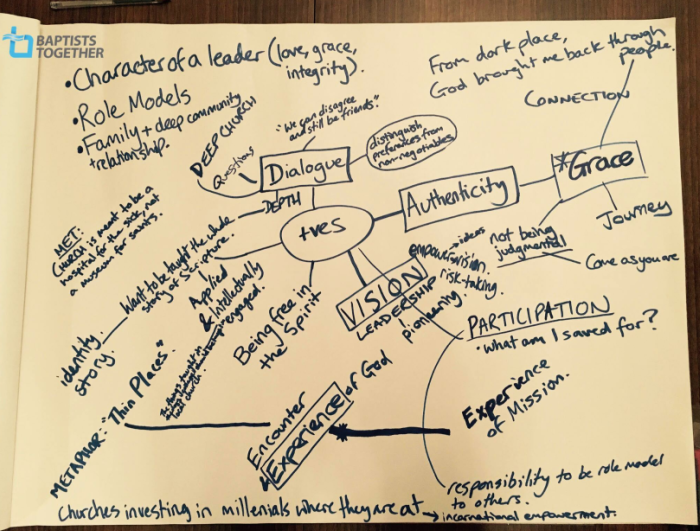 BAPTISTS
TOGETHER
• Character of a leader (love, grace,
integrity).
• Role Models
• Family + deep community
+ relationship.
From dark place,
God brought me back through
people.
CONNECTION
DEEP CHURCH
Questions
"We can disagree
and still be friends."
Dialogue
distinguish
preferences from
non-negotiables
DEPTH
+ves
Authenticity
*Grace
not being
judgmental
Journey
Come as you are
MET:
CHURCH is meant to be a
hospital for the sick, not
a museum for saints.
Want to be taught the whole
story of Scripture.
Applied
& Intellectually
engaged.
identity
story.
Being free in
the Spirit
VISION
LEADERSHIP
empowers
→ ideas
vision.
risk-taking.
pioneering.
PARTICIPATION
• What am I saved for?
Experience
of Mission.
METAPHOR: "Thin Places"
local church
Encounter
& Experience of God
responsibility to be role model
to others.
Churches investing in millenials where they are at → incarnational empowerment.